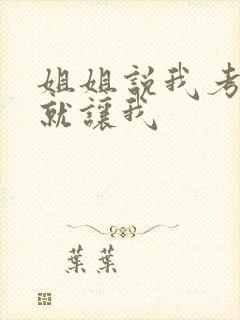 姐姐説我考
就讓我
葉葉